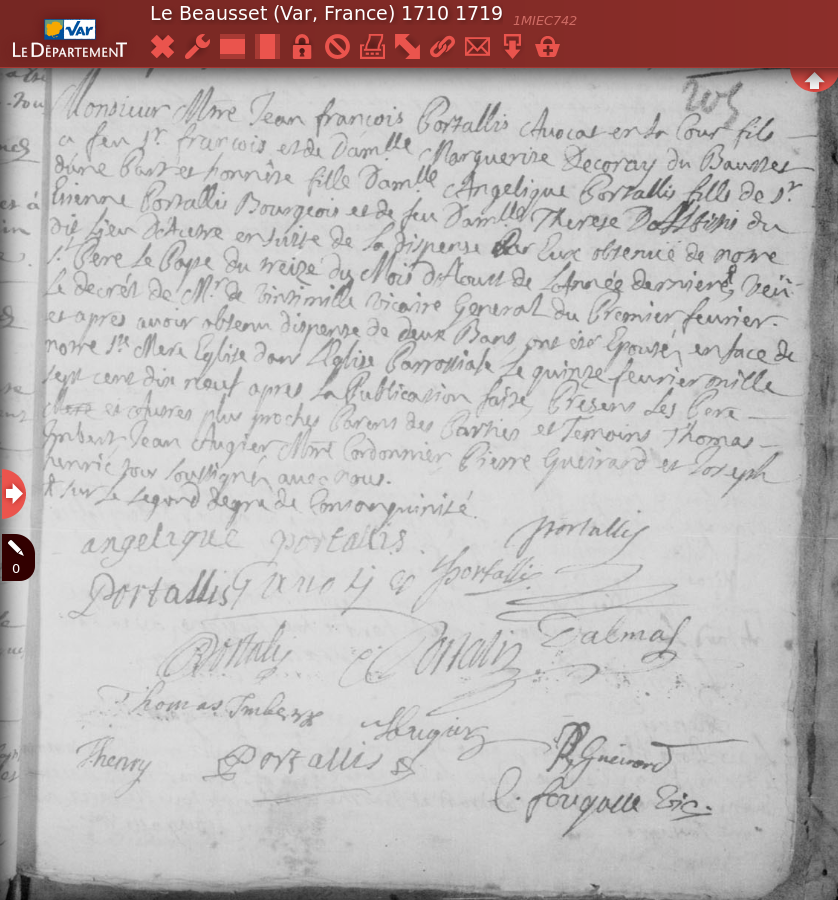 Le Beausset (Var, France) 1710 1719
1MIEC742
VAR
LE DÉPARTEMENT
205
Monsieur Mtre Jean françois Portallis Avocat en la Cour fils
a feu Sr françois et de Damlle Marguerite Decoray du Bausset
d'une Part et honnête fille Damlle Angelique Portallis fille de Sr
Etienne Portallis Bourgeois et de feu Damlle Therese du
dit Lieu D'Autre en suitte de la dispense Par Eux obtenue de notre
St Pere Le Pape du treize du Mois D'Aoust de L'Année derniere & veü
Le decret de Mr de Vintimille vicaire General du Premier fevrier.
et apres avoir obtenu dispense de deux Bans ont été Epousés en face de
notre Ste Mere Eglise dans L'Eglise Parroissiale Le quinze fevrier mille
sept cent dix neuf apres La Publication faite, Presens Les Pere
Mere et Autres plus proches Parens des Parties et Temoins Thomas
Imbert Jean Augier Mtre Cordonnier Pierre Gueirard et Joseph
henric tous soussignes avec nous.
& sur Le segond degré de Consanguinité.
angelique portallis
portallis
Portallis
Portallis
Portalis
Portalis
Dalmas
Thomas Imbert
Augier
Thenry
Portallis
P Gueirard
Fougasse Vic.
0